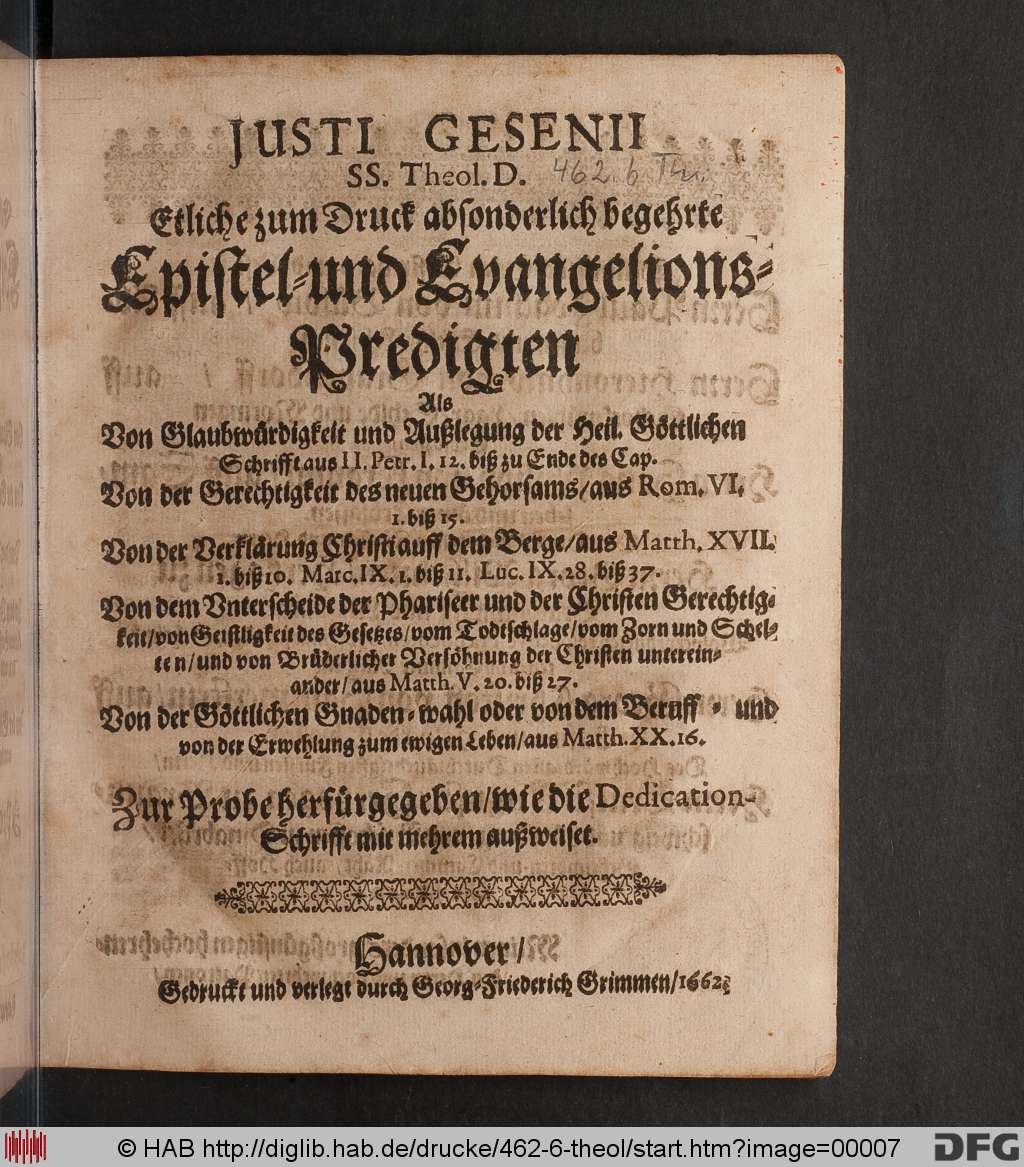 JUSTI GESENII
SS. Theol. D. 462.6 Th.
Etliche zum Druck absonderlich begehrte
Epistel- und Evangelions-
Predigten
Als
Von Glaubwürdigkeit und Außlegung der Heil. Göttlichen
Schrifft aus II. Petr. I. 12. biß zu Ende des Cap.
Von der Gerechtigkeit des neuen Gehorsams/aus Rom. VI.
1. biß 15.
Von der Verklärung Christi auff dem Berge/aus Matth. XVII.
1. biß 10. Marc. IX. 1. biß 11. Luc. IX. 28. biß 37.
Von dem Vnterscheide der Phariseer und der Christen Gerechtig-
keit/von Geistligkeit des Gesetzes/vom Todtschlage/vom Zorn und Schel-
ten/und von Brüderlicher Versöhnung der Christen unterein-
ander/aus Matth. V. 20. biß 27.
Von der Göttlichen Gnaden-wahl oder von dem Beruff - und
von der Erwehlung zum ewigen Leben/aus Matth. XX. 16.
Zur Probe herfürgegeben/wie die Dedication-
Schrifft mit mehrem außweiset.
Hannover/
Gedruckt und verlegt durch Georg-Friederich Grimmen/1662.
© HAB http://diglib.hab.de/drucke/462-6-theol/start.htm?image=00007
DFG